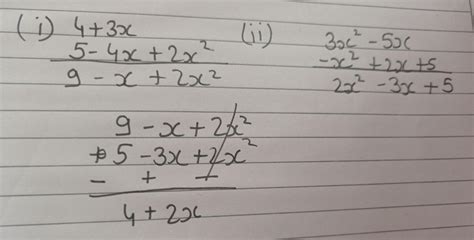 (i) 4+3x
5-4x+2x²
9-x+2x²
(ii) 3x²-5x
-x²+2x+5
2x²-3x+5
9-x+2x²
+5-3x+2x²
- + -
4+2x